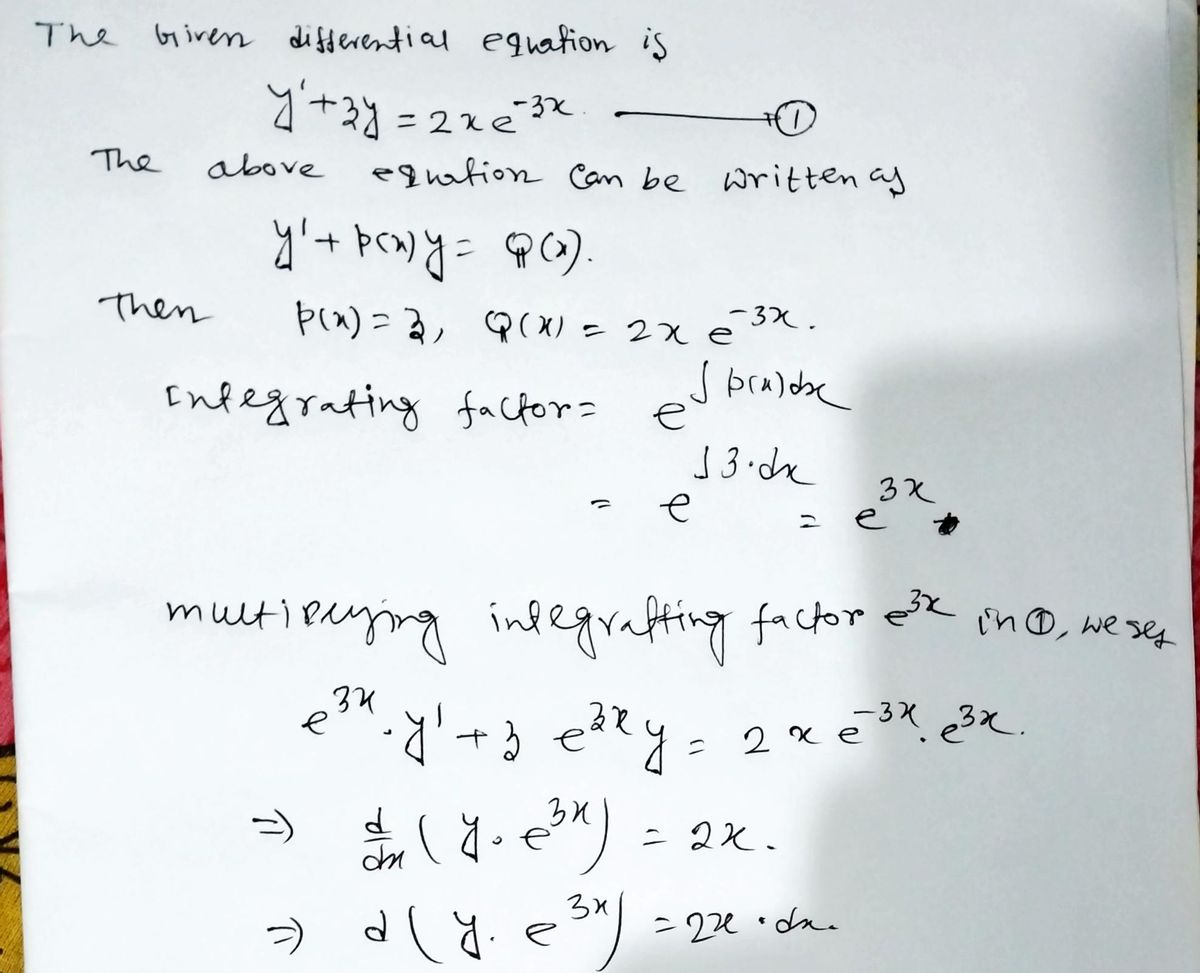 The Given differential equation is
y' + 3y = 2xe^{-3x}. ——— ①
The above equation can be written as
y' + p(x)y = Q(x).
Then p(x) = 3, Q(x) = 2x e^{-3x}.
Integrating factor = e^{∫p(x)dx}
= e^{∫3·dx} = e^{3x}.
multiplying integrafting factor e^{3x} in ①, we get
e^{3x}·y' + 3 e^{3x}y = 2xe^{-3x}.e^{3x}.
⇒ d/dx (y·e^{3x}) = 2x.
⇒ d(y·e^{3x}) = 2x·dx.